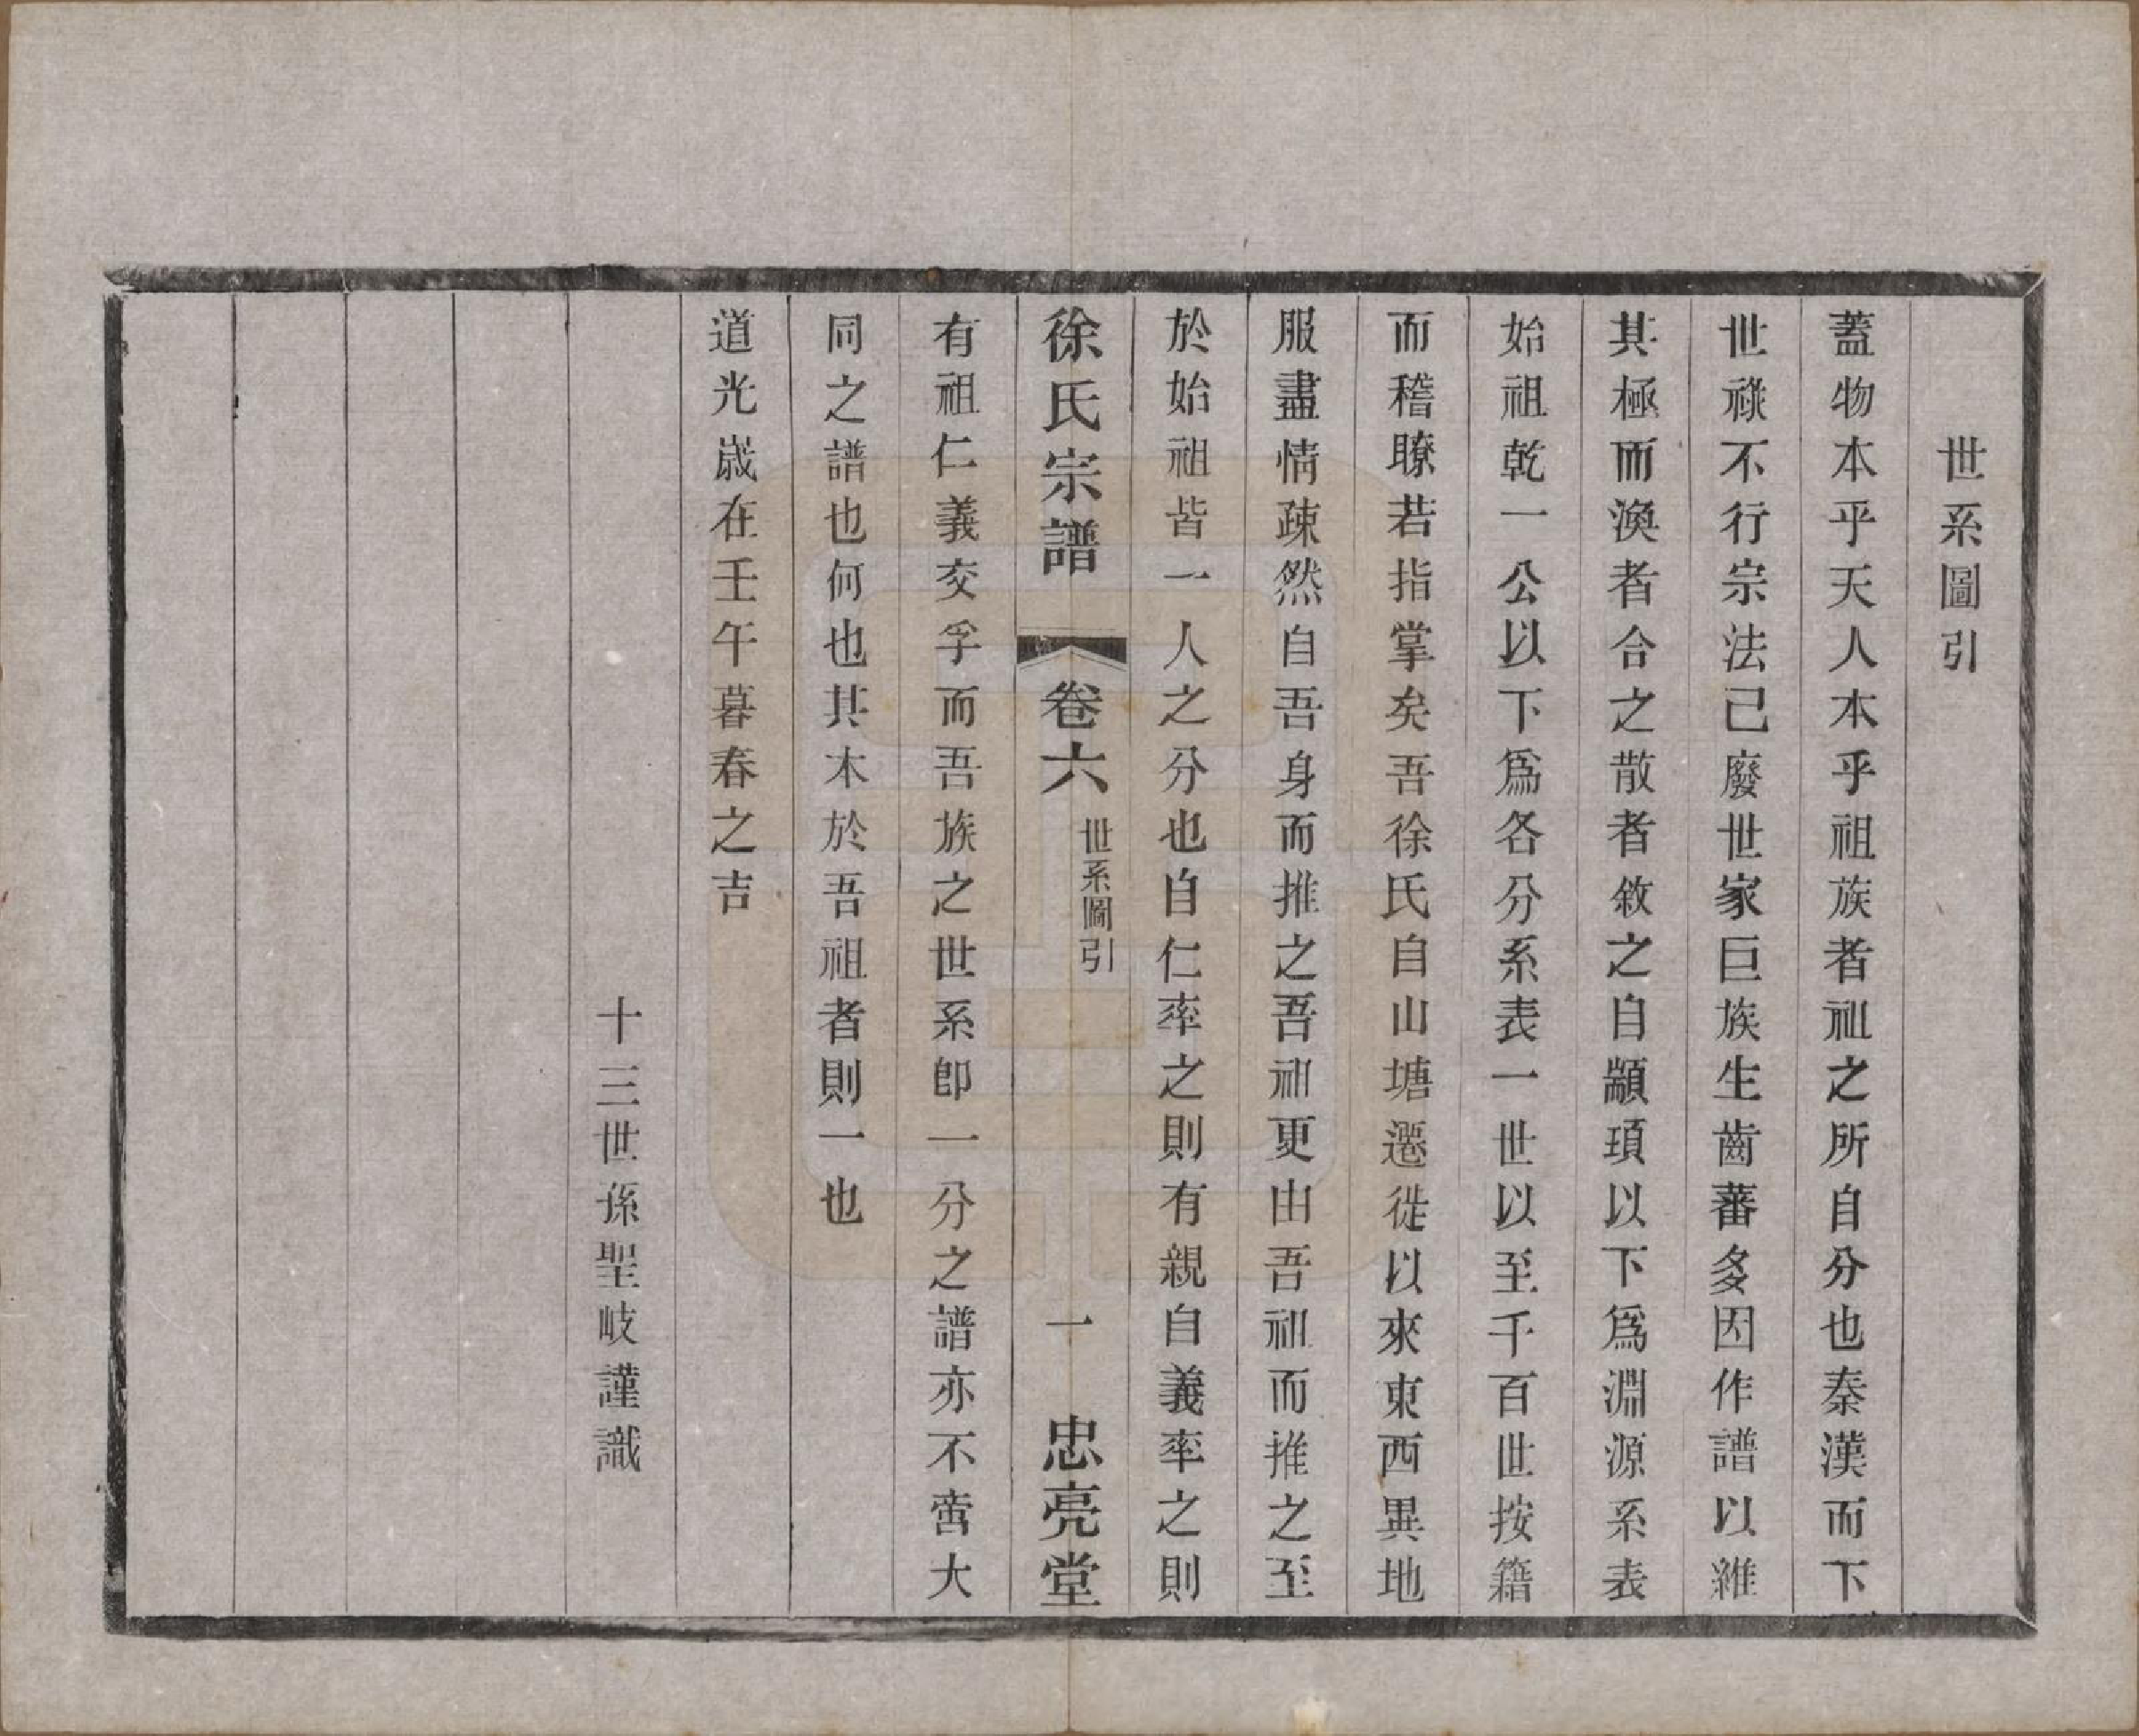 世系圖引
蓋物本乎天人本乎祖族者祖之所自分也秦漢而下
世祿不行宗法己廢世家巨族生齒蕃多因作譜以維
其極而渙者合之散者敘之自顓頊以下爲淵源系表
始祖乾一公以下爲各分系表一世以至千百世按籍
而稽瞭若指掌矣吾徐氏自山塘遷徙以來東西異地
服盡情疎然自吾身而推之吾祖更由吾祖而推之至
於始祖皆一人之分也自仁率之則有親自義率之則
徐氏宗譜 卷六 世系圖引 一 忠亮堂
有祖仁義交孚而吾族之世系卽一分之譜亦不啻大
同之譜也何也其木於吾祖者則一也
道光嵗在壬午暮春之吉
十三世孫聖岐謹識